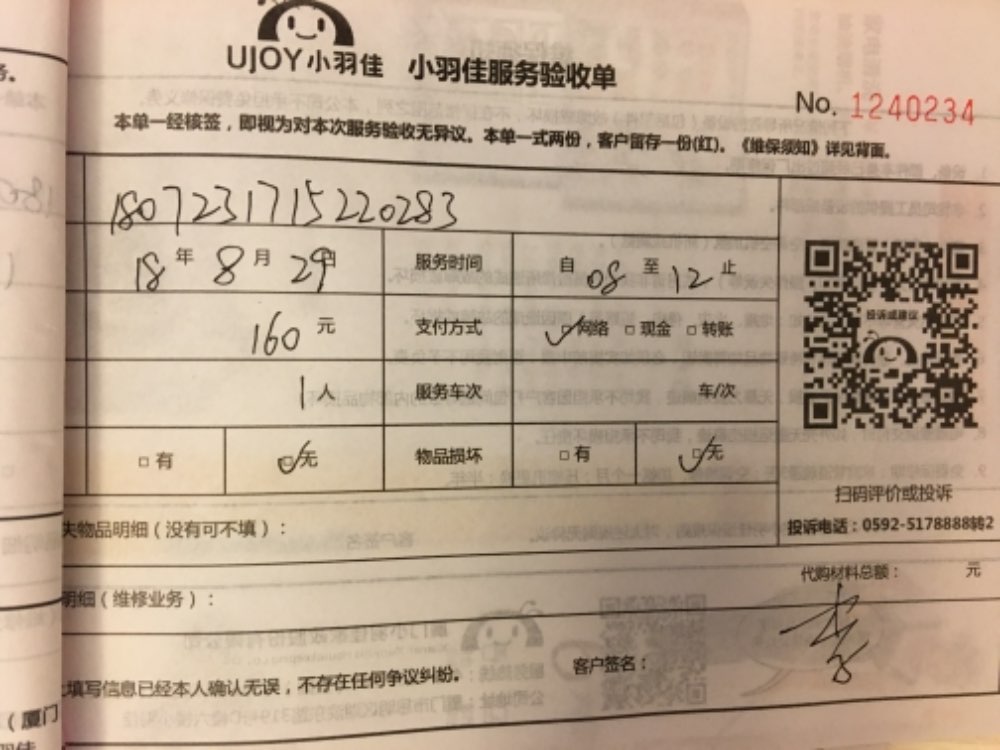 务。
UJOY小羽佳 小羽佳服务验收单
No. 1240234
本单一经核签，即视为对本次服务验收无异议。本单一式两份，客户留存一份(红)。《维保须知》详见背面。
1807231715220283
18 年 8 月 29 日 服务时间 自 08 至 12 止
160 元 支付方式 ☑网络 □现金 □转账
投诉或建议
1 人 服务车次 车/次
□有 ☑无 物品损坏 □有 ☑无
扫码评价或投诉
投诉电话：0592-5178888转2
失物品明细（没有可不填）：
代购材料总额： 元
明细（维修业务）：
填写信息已经本人确认无误，不存在任何争议纠纷。 客户签名：
（厦门
羽佳